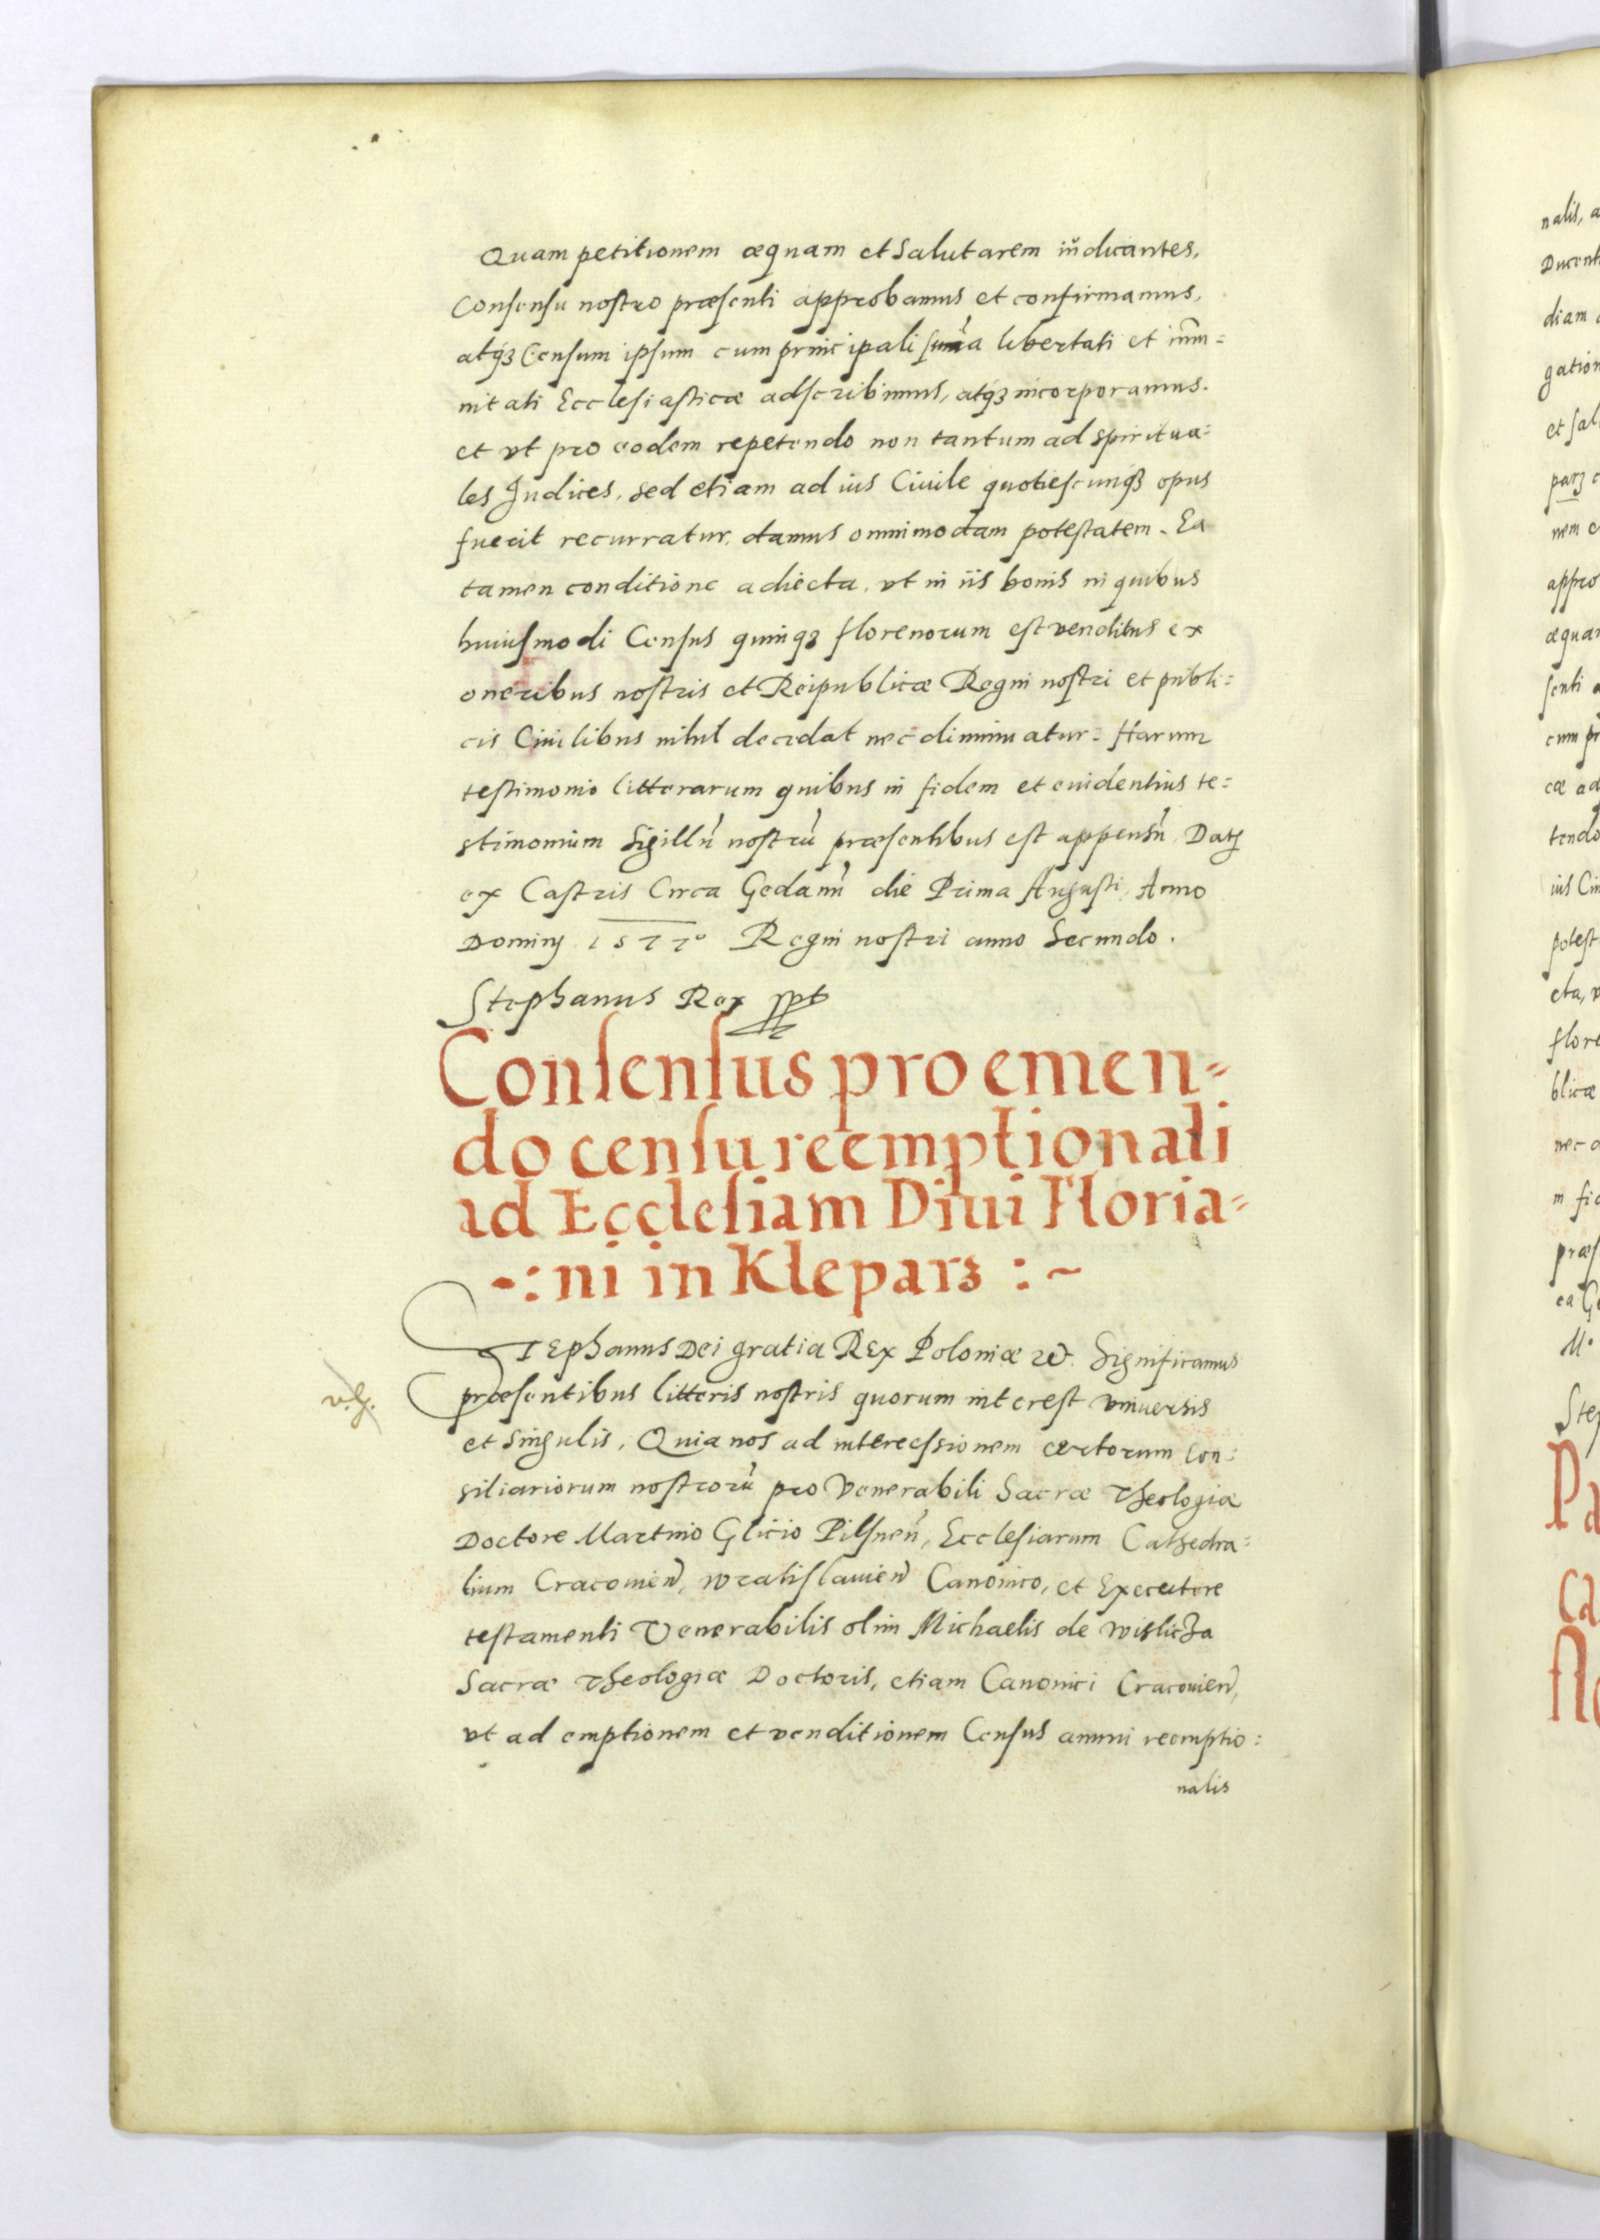 Quam petitionem æquam et salutarem iudicantes,
Consensu nostro præsenti approbamus et confirmamus,
atq3 Censum ipsum cum principali sum̃a libertati et im̃u=
nitati Ecclesiasticæ adscribimus, atq3 incorporamus.
et vt pro eodem repetendo non tantum ad spiritua=
les Judices, sed etiam ad ius Ciuile quotiescunq3 opus
fuerit recurratur, damus omnimodam potestatem. Ea
tamen conditione adiecta, vt in iis bonis in quibus
huiusmodi Census quinq3 florenorum est venditus ex
oneribus nostris et Reipublicæ Regni nostri et publi=
cis Ciuilibus nihil decedat nec diminuatur. Harum
testimonio litterarum quibus in fidem et euidentius te=
stimonium Sigillũ nostrũ præsentibus est appensũ. Datȝ
ex Castris Circa Gedanũ die Prima Augusti, Anno
Dominj 1577º Regni nostri anno Secundo.
Stephanus Rex sspt
Consensus pro emen=
do censu reemptionali
ad Ecclesiam Diui Floria=
-: ni in Kleparz :~
Stephanus Dei gratia REx Poloniæ &c. Significamus
præsentibus litteris nostris quorum interest vniuersis
et singulis, Quia nos ad intercessionem certorum Con:
siliariorum nostrorũ pro Venerabili Sacræ Theologiæ
Doctore Martino Glicio Pilsneñ, Ecclesiarum Cathedra=
lium Cracouieñ, Wratislauieñ Canonico, et Executore
testamenti Venerabilis olim Michaelis de Wislicza
Sacræ Theologiæ Doctoris, etiam Canonici Cracouieñ,
vt ad emptionem et venditionem Census annui reemptio:
nalis